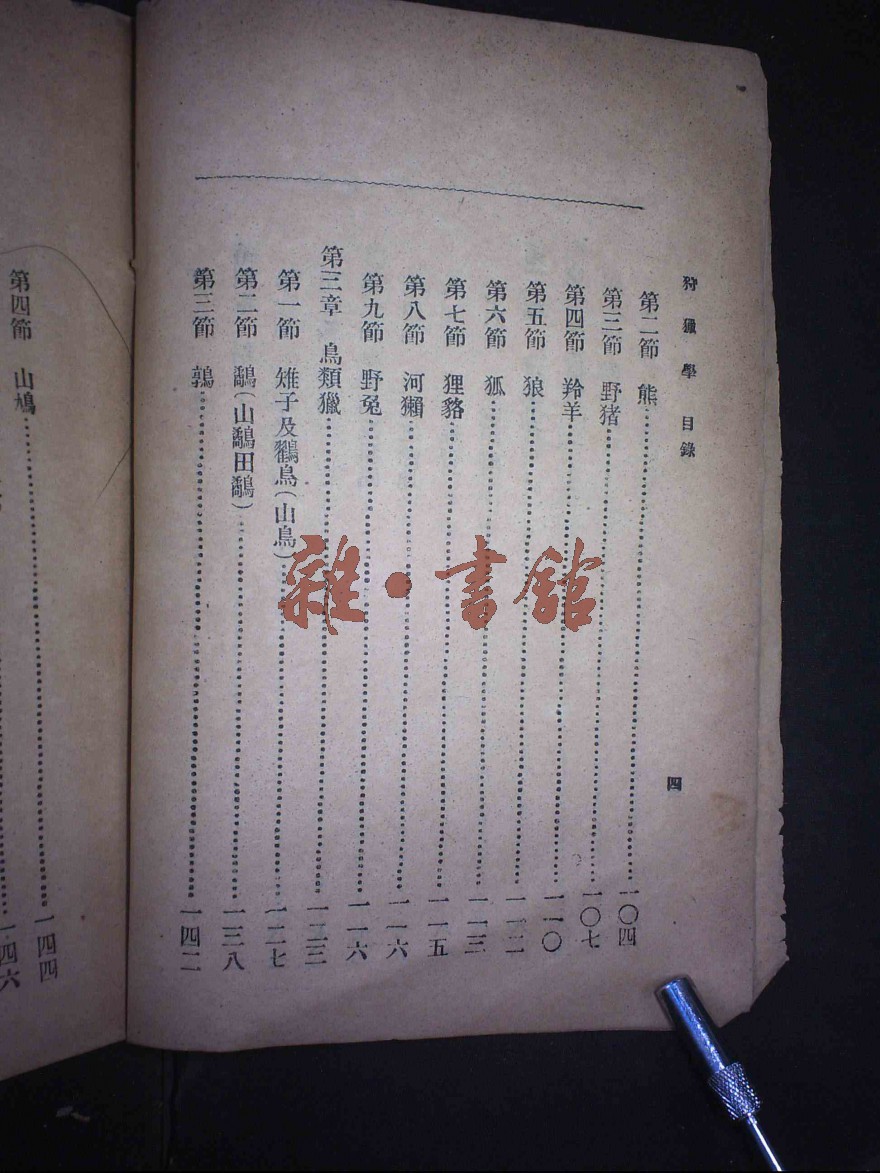 狩獵學 目錄
四
第二節 熊 一〇四
第三節 野猪 一〇七
第四節 羚羊 一一〇
第五節 狼 一一二
第六節 狐 一一三
第七節 狸貉 一一五
第八節 河獺 一一六
第九節 野兔 一一六
第三章 鳥類獵 一二三
第一節 雉子及鸐鳥(山鳥) 一二七
第二節 鷸(山鷸田鷸) 一三八
第三節 鶉 一四二
第四節 山鳩 一四四
一四六
雜·書館